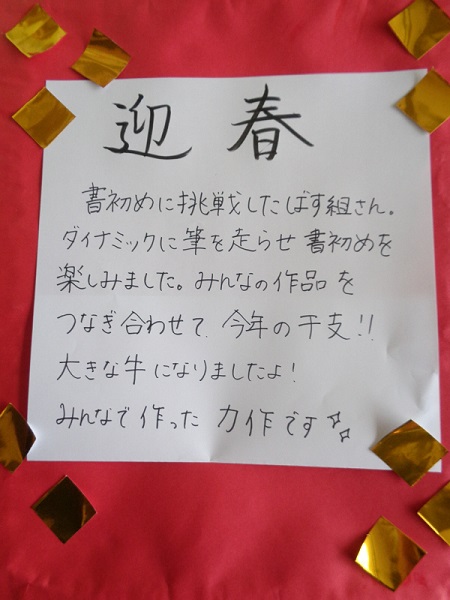 迎春
書初めに挑戦したばす組さん。
ダイナミックに筆を走らせ書初めを
楽しみました。みんなの作品を
つなぎ合わせて、今年の干支!!
大きな牛になりましたよ!
みんなで作った力作です